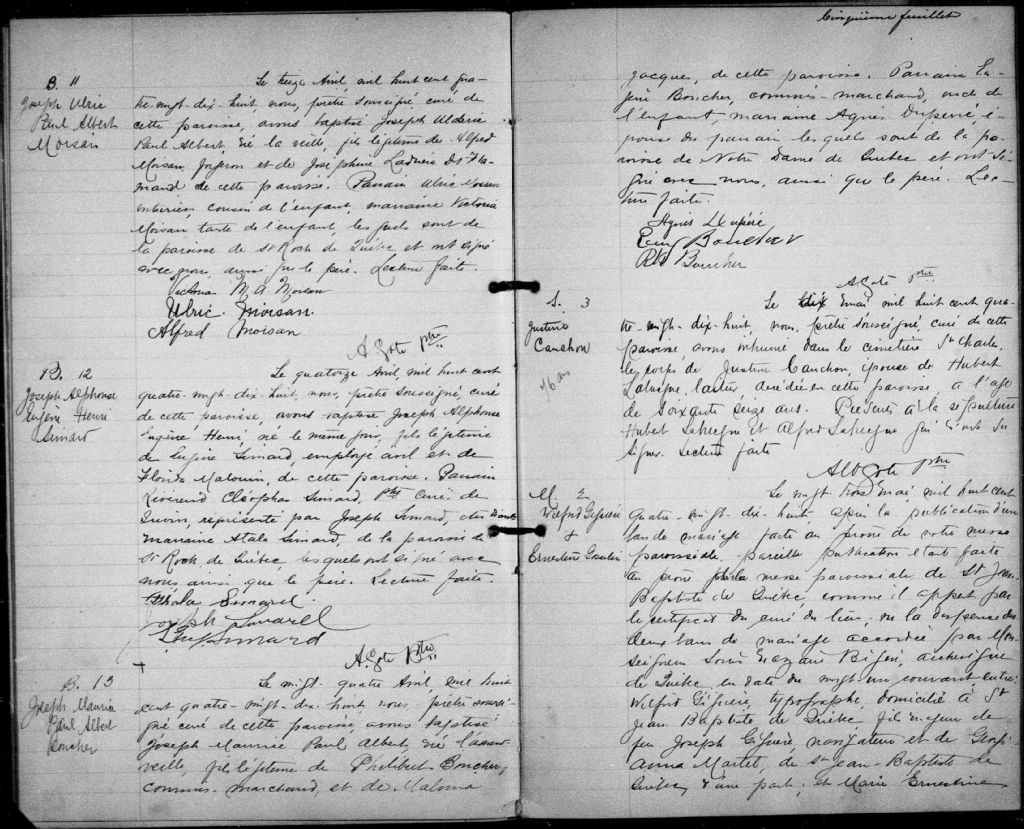 B. 11
Joseph Ulric
Paul Albert
Moisan
Le treize Avril, mil huit cent qua-
tre-vingt-dix-huit, nous, prêtre soussigné, curé de
cette paroisse, avons baptisé Joseph Ulderic
Paul Albert, né la veille, fils légitime de Alfred
Moisan, et de Joséphine
de cette paroisse. Parrain Ulric Moisan
cousin de l'enfant, marraine Victoria
Moisan tante de l'enfant, lesquels sont de
la paroisse de St Roch de Québec et ont signé
avec nous, ainsi que le père. Lecture faite.
Victoria M. A. Moisan
Ulric Moisan
Alfred Moisan
A. Goté Ptre
B. 12
Joseph Alphonse
Eugène Henri
Simard
Le quatorze Avril, mil huit cent
quatre-vingt-dix-huit, nous, prêtre soussigné, curé
de cette paroisse, avons baptisé Joseph Alphonse
Eugène Henri, né le même jour, fils légitime
de Eugène Simard, employé civil et de
Florida Malouin, de cette paroisse. Parrain
Révérend Cléophas Simard, Ptre Curé de
représenté par Joseph Simard,
marraine Atala Simard, de la paroisse de
St Roch de Québec, lesquels ont signé avec
nous ainsi que le père. Lecture faite.
Atala Simard
Joseph Simard
Eug. Simard
A. Goté Ptre
B. 13
Joseph Maurice
Paul Albert
Boucher
Le vingt-quatre Avril, mil huit
cent quatre-vingt-dix-huit nous, prêtre soussi-
gné curé de cette paroisse, avons baptisé
Joseph Maurice Paul Albert, né l'avant
veille, fils légitime de Philibert Boucher,
commis-marchand, et de Malvina
Cinquième feuillet
Jacques, de cette paroisse. Parrain Eu-
gène Boucher, commis-marchand, oncle de
l'enfant, marraine Agnès Dupéré, é-
pouse du parrain lesquels sont de la pa-
roisse de Notre Dame de Québec et ont si-
gné avec nous, ainsi que le père. Lec-
ture faite.
Agnès Dupéré
Eug Boucher
Boucher
A. Goté Ptre
S. 3
Justine
Cauchon
76 ans
Le dix mai mil huit cent qua-
tre-vingt-dix-huit, nous, prêtre soussigné, curé de cette
paroisse, avons inhumé dans le cimetière St Charles,
le corps de Justine Cauchon, épouse de Hubert
décédée en cette paroisse à l'age
de soixante seize ans. Présents à la sépulture
Hubert et Alfred qui n'ont su
signer. Lecture faite
A. Goté Ptre
M. 2
Wilfrid
+
Ernestine
Le vingt trois mai, mil huit cent
quatre-vingt-dix-huit, après la publication d'un
ban de mariage faite au prône de notre messe
paroissiale pareille publication étant faite
au prône de la messe paroissiale de St Jean
Baptiste de Québec comme il appert par
le certificat du curé du lieu; vu la dispense de
deux bans de mariage accordée par Mon
seigneur Louis Nazaire Bégin, archevêque
de Québec, en date du vingt un courant entre
Wilfrid typographe, domicilié à St
Jean Baptiste de Québec fils majeur de
feu Joseph navigateur et de Georgi-
anna Martel, de St Jean-Baptiste de
Québec, d'une part; et Marie Ernestine